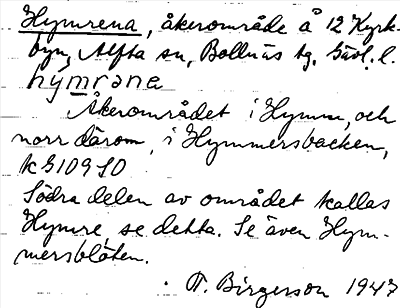 Hymrena, åkerområde å 12 Kyrk-
byn, Alfta sn, Bollnäs tg. Gävl. l.
hymrane
Åkerområdet i Hymre, och
norr därom, i Hymmersbacken,
K 3109 SO
Södra delen av området kallas
Hymre se detta. Se även Hym-
mersblöten.
A. Birgerson 1947